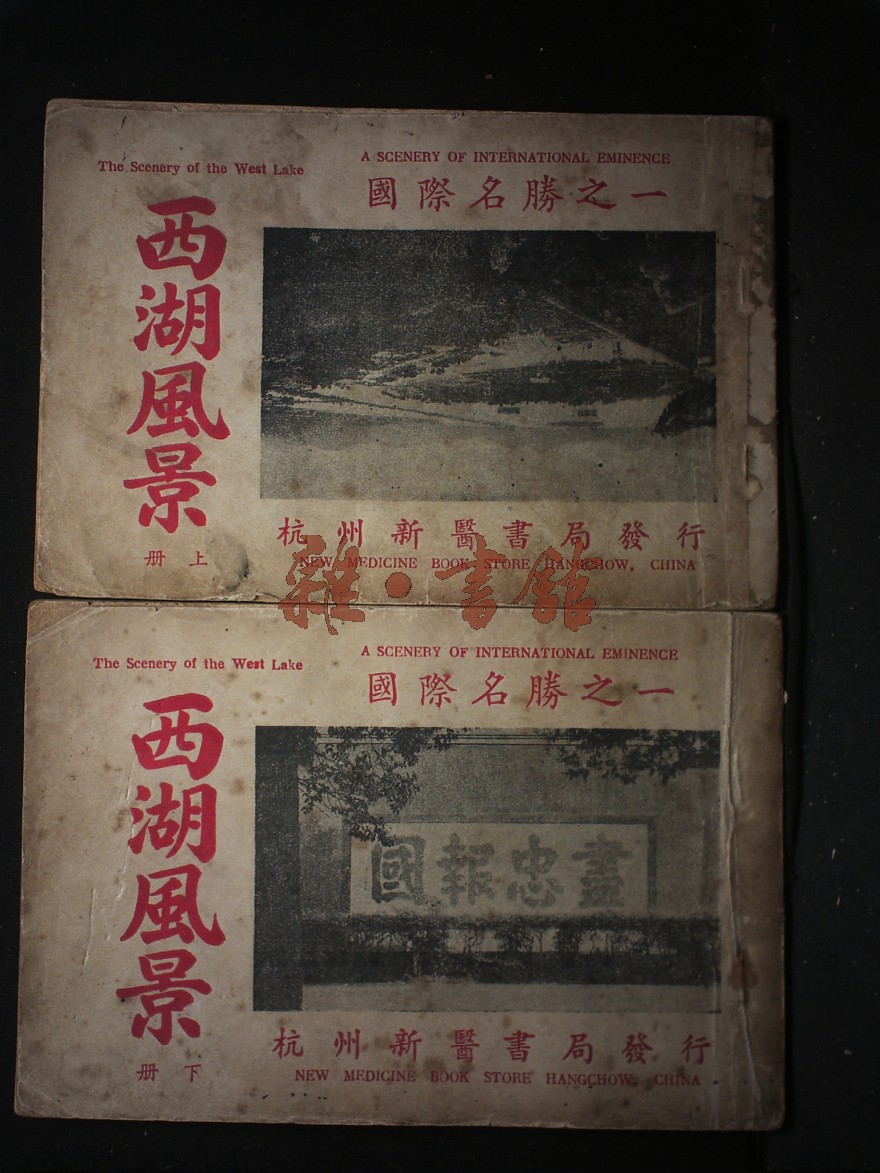 The Scenery of the West Lake
A SCENERY OF INTERNATIONAL EMINENCE
國際名勝之一
西湖風景
上册
杭州新醫書局發行
NEW MEDICINE BOOK STORE HANGCHOW, CHINA
雜·書館
The Scenery of the West Lake
A SCENERY OF INTERNATIONAL EMINENCE
國際名勝之一
西湖風景
盡忠報國
下册
杭州新醫書局發行
NEW MEDICINE BOOK STORE HANGCHOW, CHINA